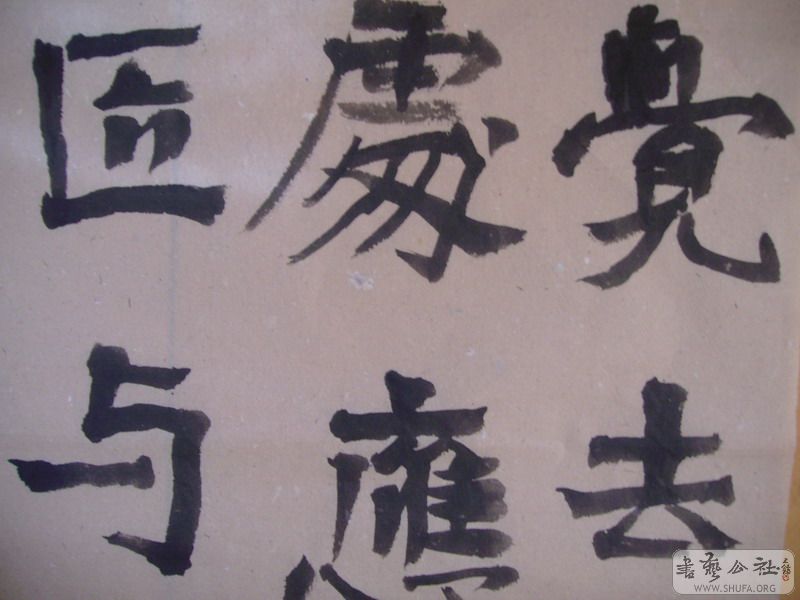 覺去
處應
与
書藝公社
WWW.SHUFA.ORG